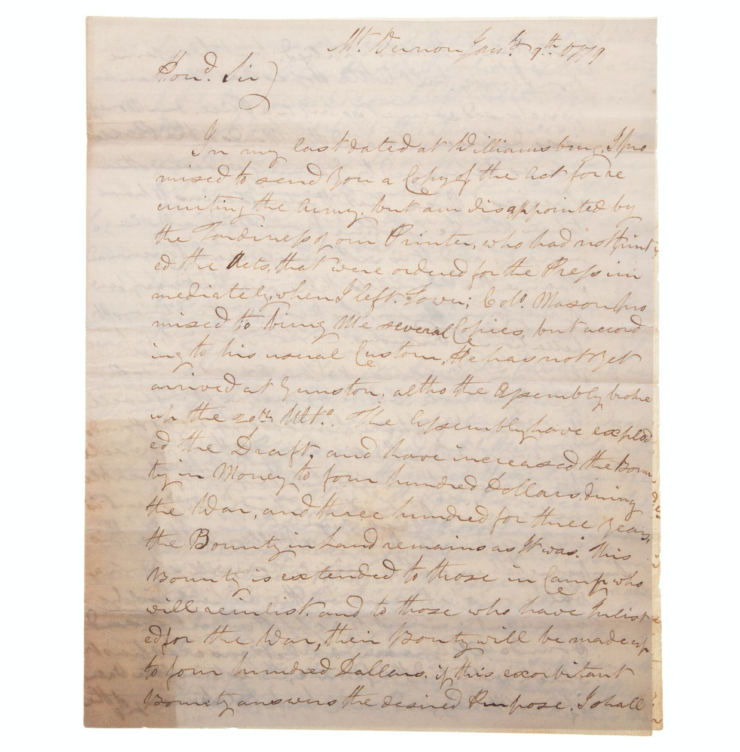 Mt. Vernon Jany. 9th. 1779
Hond. Sir
In my last dated at Williamsburg, I pro
mised to send you a Copy of the Act for re
cruiting the Army, but am disappointed by
the Tardiness of our Printer, who had not print
ed the Acts, that were ordered for the Press im
mediately, when I left Town; Colo. Mason pro
mised to bring me several Copies, but accord
ing to his usual Custom, He has not yet
arrived at Gunston, altho the Assembly broke
up the 20th. Ulto. The Assembly have explod
ed the Draft, and have increased the Boun
ty in Money to four hundred Dollars during
the War, and three hundred for three years,
the Bounty in hand remains as it was. This
Bounty is extended to those in Camp who
will reinlist and to those who have Inlist
ed for the War, their Bounty will be made up
to four hundred Dollars. if this exorbitant
Bounty answers the desired Purpose. I shall